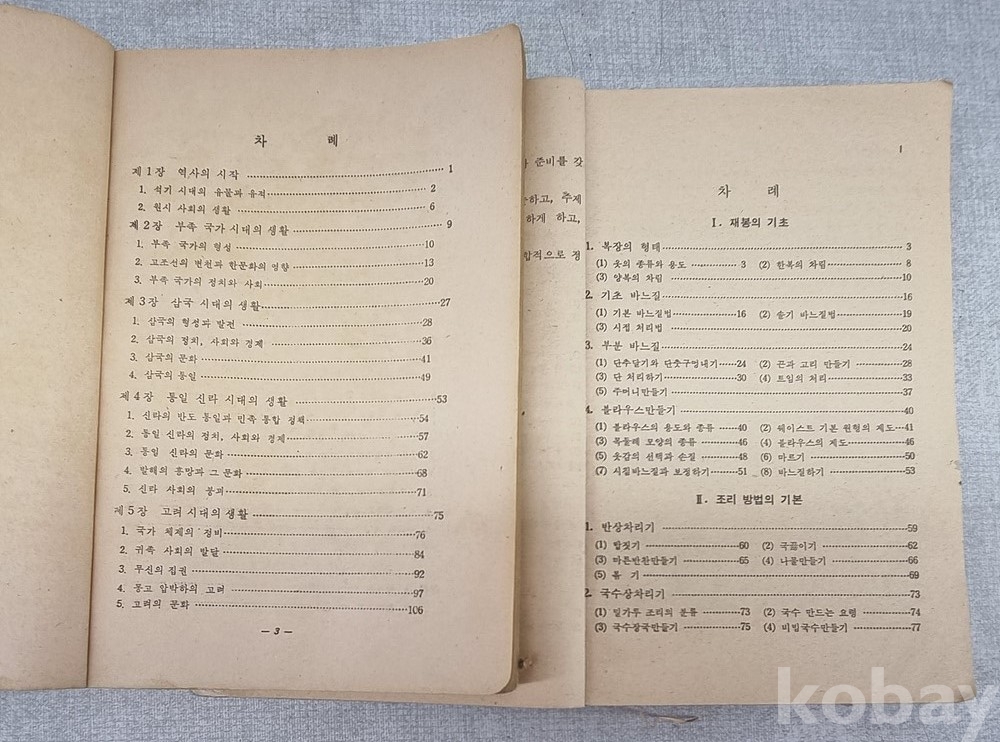 차 례
제1장 역사의 시작 1
1. 석기 시대의 유물과 유적 2
2. 원시 사회의 생활 6
제2장 부족 국가 시대의 생활 9
1. 부족 국가의 형성 10
2. 고조선의 변천과 한문화의 영향 13
3. 부족 국가의 정치와 사회 20
제3장 삼국 시대의 생활 27
1. 삼국의 형성과 발전 28
2. 삼국의 정치, 사회와 경제 36
3. 삼국의 문화 41
4. 삼국의 통일 49
제4장 통일 신라 시대의 생활 53
1. 신라의 반도 통일과 민족 통합 정책 54
2. 통일 신라의 정치, 사회와 경제 57
3. 통일 신라의 문화 62
4. 발해의 흥망과 그 문화 68
5. 신라 사회의 붕괴 71
제5장 고려 시대의 생활 75
1. 국가 체제의 정비 76
2. 귀족 사회의 발달 84
3. 무신의 집권 92
4. 몽고 압박하의 고려 97
5. 고려의 문화 106
— 3 —
준비를 갖
하고, 주제
하게 하고,
합적으로 정
1
차 례
Ⅰ. 재봉의 기초
1. 복장의 형태 3
(1) 옷의 종류와 용도 3 (2) 한복의 차림 8
(3) 양복의 차림 10
2. 기초 바느질 16
(1) 기본 바느질법 16 (2) 솔기 바느질법 19
(3) 시접 처리법 20
3. 부분 바느질 24
(1) 단추달기와 단춧구멍내기 24 (2) 끈과 고리 만들기 28
(3) 단 처리하기 30 (4) 트임의 처리 33
(5) 주머니만들기 37
4. 블라우스만들기 40
(1) 블라우스의 용도와 종류 40 (2) 웨이스트 기본 원형의 제도 41
(3) 목둘레 모양의 종류 46 (4) 블라우스의 제도 46
(5) 옷감의 선택과 손질 48 (6) 마르기 50
(7) 시침바느질과 보정하기 51 (8) 바느질하기 53
Ⅱ. 조리 방법의 기본
1. 반상차리기 59
(1) 밥짓기 60 (2) 국끓이기 62
(3) 마른반찬만들기 65 (4) 나물만들기 66
(5) 볶 기 69
2. 국수상차리기 73
(1) 밀가루 조리의 분류 73 (2) 국수 만드는 요령 74
(3) 국수장국만들기 75 (4) 비빔국수만들기 77
kobay